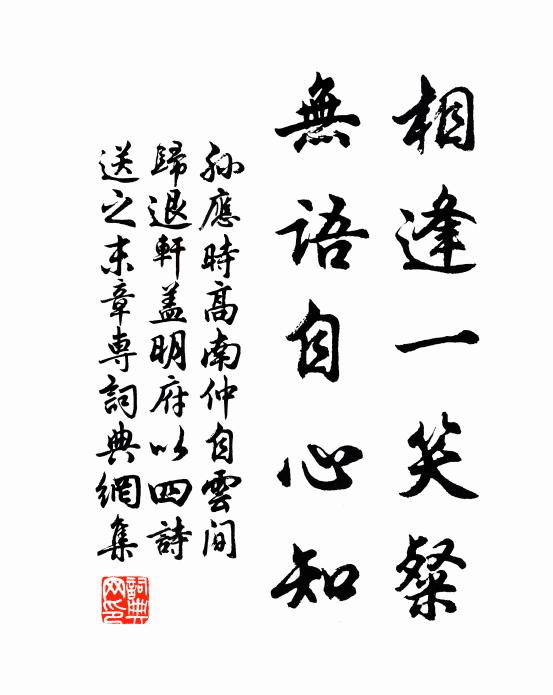 相逢一笑粲
無語自心知
孫應時高南仲自雲间
歸退軒蓋明府以四詩
送之末章専詞典網集
詞典網印